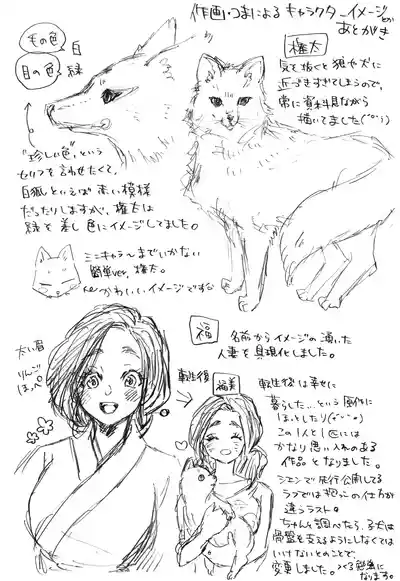 作画・つまによる キャラクターイメージとか
あとがき
毛の色 白
目の色 緑
権太
気を抜くと狼や犬に
近づきすぎてしまうので、
常に資料見ながら
描いてました
"珍しい色"という
セリフを言わせたくて、
白狐といえば赤い模様
だったりしますが、権太は
緑を差し色にイメージしてました。
ミニキャラ〜までいかない
簡単ver.権太。
かわいいイメージです
福
名前からイメージの湧いた
人妻を具現化しました。
太い眉
りんご
ほっぺ
転生後
福美
転生後は幸せに
暮らした…という創作に
ほっとしたり
この1人と1匹には
かなり思い入れのある
作品となりました。
先行公開してる
ラフでは抱っこの仕方が
違うラスト。
ちゃんと調べたら、子犬は
骨盤を支えるようにしなくては
いけないとのことで、
変更しました。